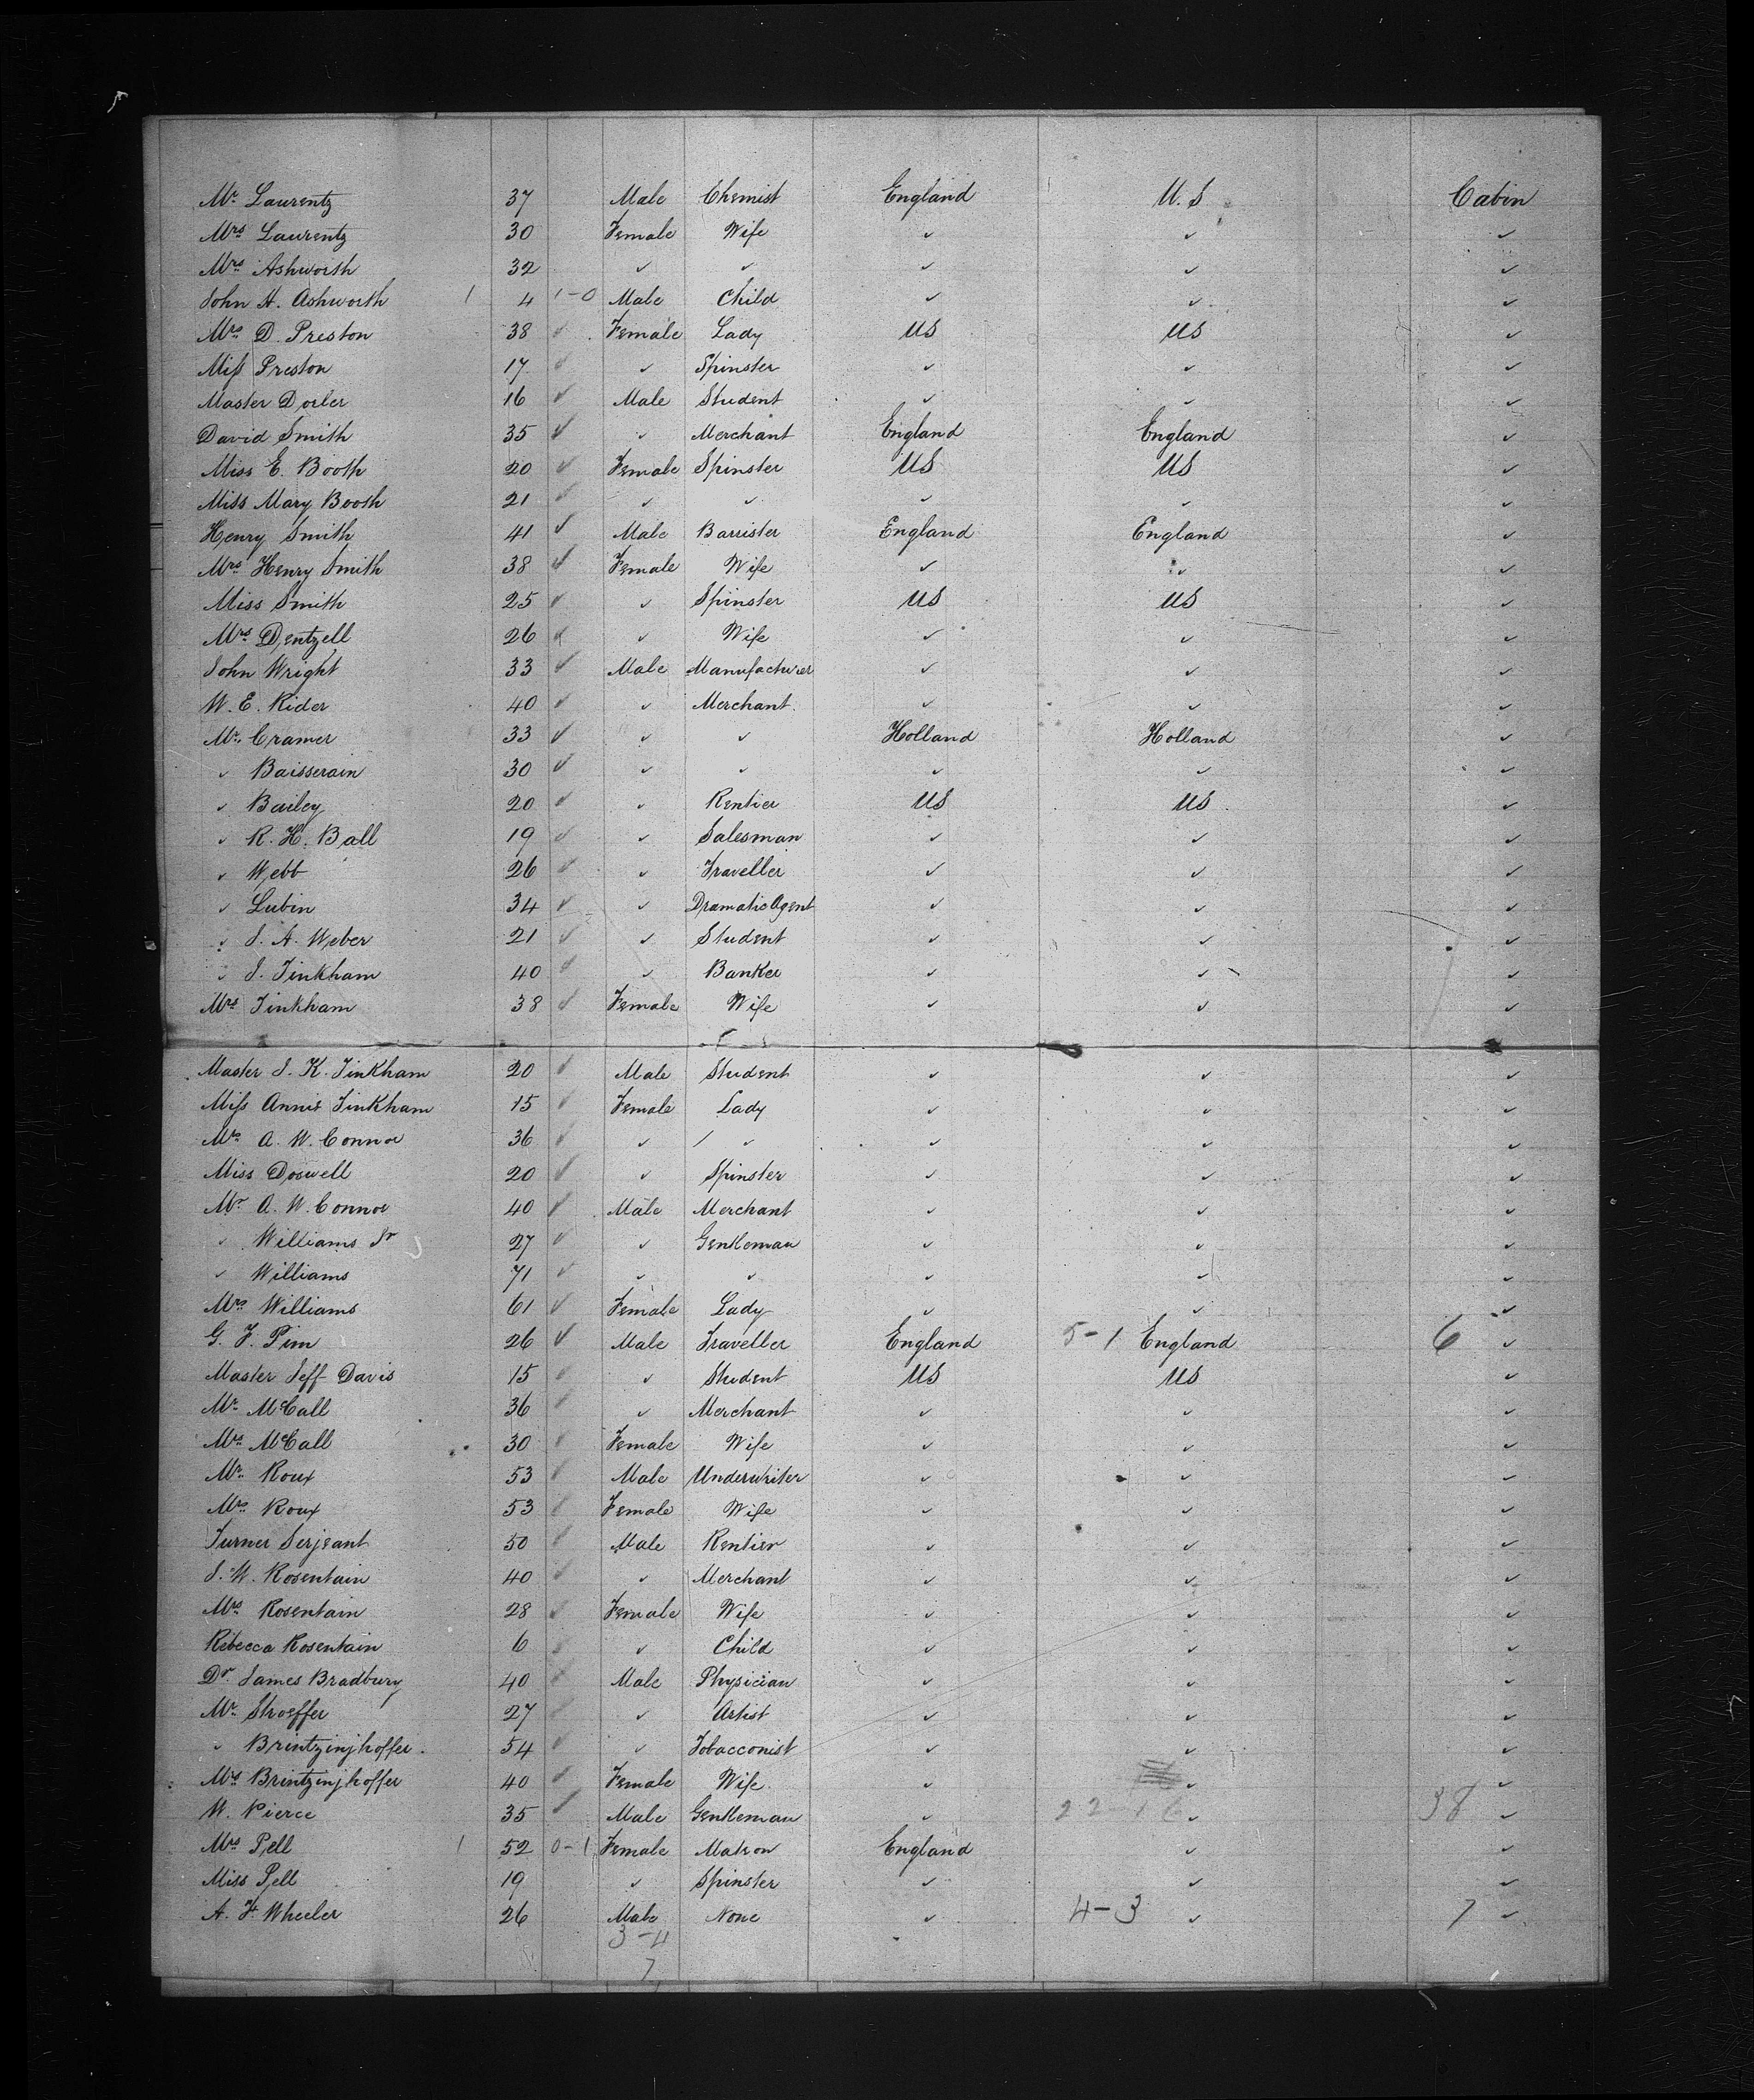 Mr. Laurentz 37 Male Chemist England U.S Cabin
Mrs Laurentz 30 Female Wife ✓ ✓ ✓
Mrs Ashworth 32 ✓ ✓ ✓ ✓ ✓
John H. Ashworth 1 4 1-0 Male Child ✓ ✓ ✓
Mrs D. Preston 38 ✓ Female Lady US US ✓
Miſs Preston 17 ✓ ✓ Spinster ✓ ✓ ✓
Master Dorler 16 ✓ Male Student ✓ ✓ ✓
David Smith 35 ✓ ✓ Merchant England England ✓
Miss E. Booth 20 ✓ Female Spinster US US ✓
Miss Mary Booth 21 ✓ ✓ ✓ ✓ ✓ ✓
Henry Smith 41 ✓ Male Barrister England England ✓
Mrs Henry Smith 38 ✓ Female Wife ✓ ✓ ✓
Miss Smith 25 ✓ ✓ Spinster US US ✓
Mrs Dentzell 26 ✓ ✓ Wife ✓ ✓ ✓
John Wright 33 ✓ Male Manufacturer ✓ ✓ ✓
W. E. Rider 40 ✓ ✓ Merchant ✓ ✓ ✓
Mr. Cramer 33 ✓ ✓ ✓ Holland Holland ✓
✓ Baisserain 30 ✓ ✓ ✓ ✓ ✓ ✓
✓ Bailey 20 ✓ ✓ Rentier US US ✓
✓ R. H. Ball 19 ✓ ✓ Salesman ✓ ✓ ✓
✓ Webb 26 ✓ ✓ Traveller ✓ ✓ ✓
✓ Lubin 34 ✓ ✓ Dramatic Agent ✓ ✓ ✓
✓ J. A. Weber 21 ✓ ✓ Student ✓ ✓ ✓
✓ J. Tinkham 40 ✓ ✓ Banker ✓ ✓ ✓
Mrs Tinkham 38 ✓ Female Wife ✓ ✓ ✓
Master J. K. Tinkham 20 ✓ Male Student ✓ ✓ ✓
Miſs Annie Tinkham 15 ✓ Female Lady ✓ ✓ ✓
Mrs A. W. Connor 36 ✓ ✓ ✓ ✓ ✓ ✓
Miss Doswell 20 ✓ ✓ Spinster ✓ ✓ ✓
Mr A. W. Connor 40 ✓ Male Merchant ✓ ✓ ✓
✓ Williams Jr 27 ✓ ✓ Gentleman ✓ ✓ ✓
✓ Williams 71 ✓ ✓ ✓ ✓ ✓ ✓
Mrs Williams 61 ✓ Female Lady ✓ ✓ ✓
G. F. Pim 26 ✓ Male Traveller England 5-1 England 6 ✓
Master Jeff Davis 15 ✓ ✓ Student US US ✓
Mr. McCall 36 ✓ ✓ Merchant ✓ ✓ ✓
Mrs McCall 30 ✓ Female Wife ✓ ✓ ✓
Mr. Roux 53 ✓ Male Underwriter ✓ ✓ ✓
Mrs Roux 53 ✓ Female Wife ✓ ✓ ✓
Turner Serjeant 50 ✓ Male Rentier ✓ ✓ ✓
J. W. Rosentain 40 ✓ ✓ Merchant ✓ ✓ ✓
Mrs Rosentain 28 ✓ Female Wife ✓ ✓ ✓
Rebecca Rosentain 6 ✓ ✓ Child ✓ ✓ ✓
Dr. James Bradbury 40 ✓ Male Physician ✓ ✓ ✓
Mr. Stroeffer 27 ✓ ✓ Artist ✓ ✓ ✓
✓ Brintzinjhoffer. 54 ✓ ✓ Tobacconist ✓ ✓ ✓
Mrs Brintzinjhoffer 40 ✓ Female Wife ✓ ✓ ✓
W. Pierce 35 ✓ Male Gentleman ✓ 22-16 ✓ 38 ✓
Mrs Pell 1 52 0-1 Female Matron England ✓ ✓
Miss Pell 19 ✓ Spinster ✓ ✓ ✓
A. F. Wheeler 26 Male None ✓ 4-3 ✓ 7 ✓
3-4
7